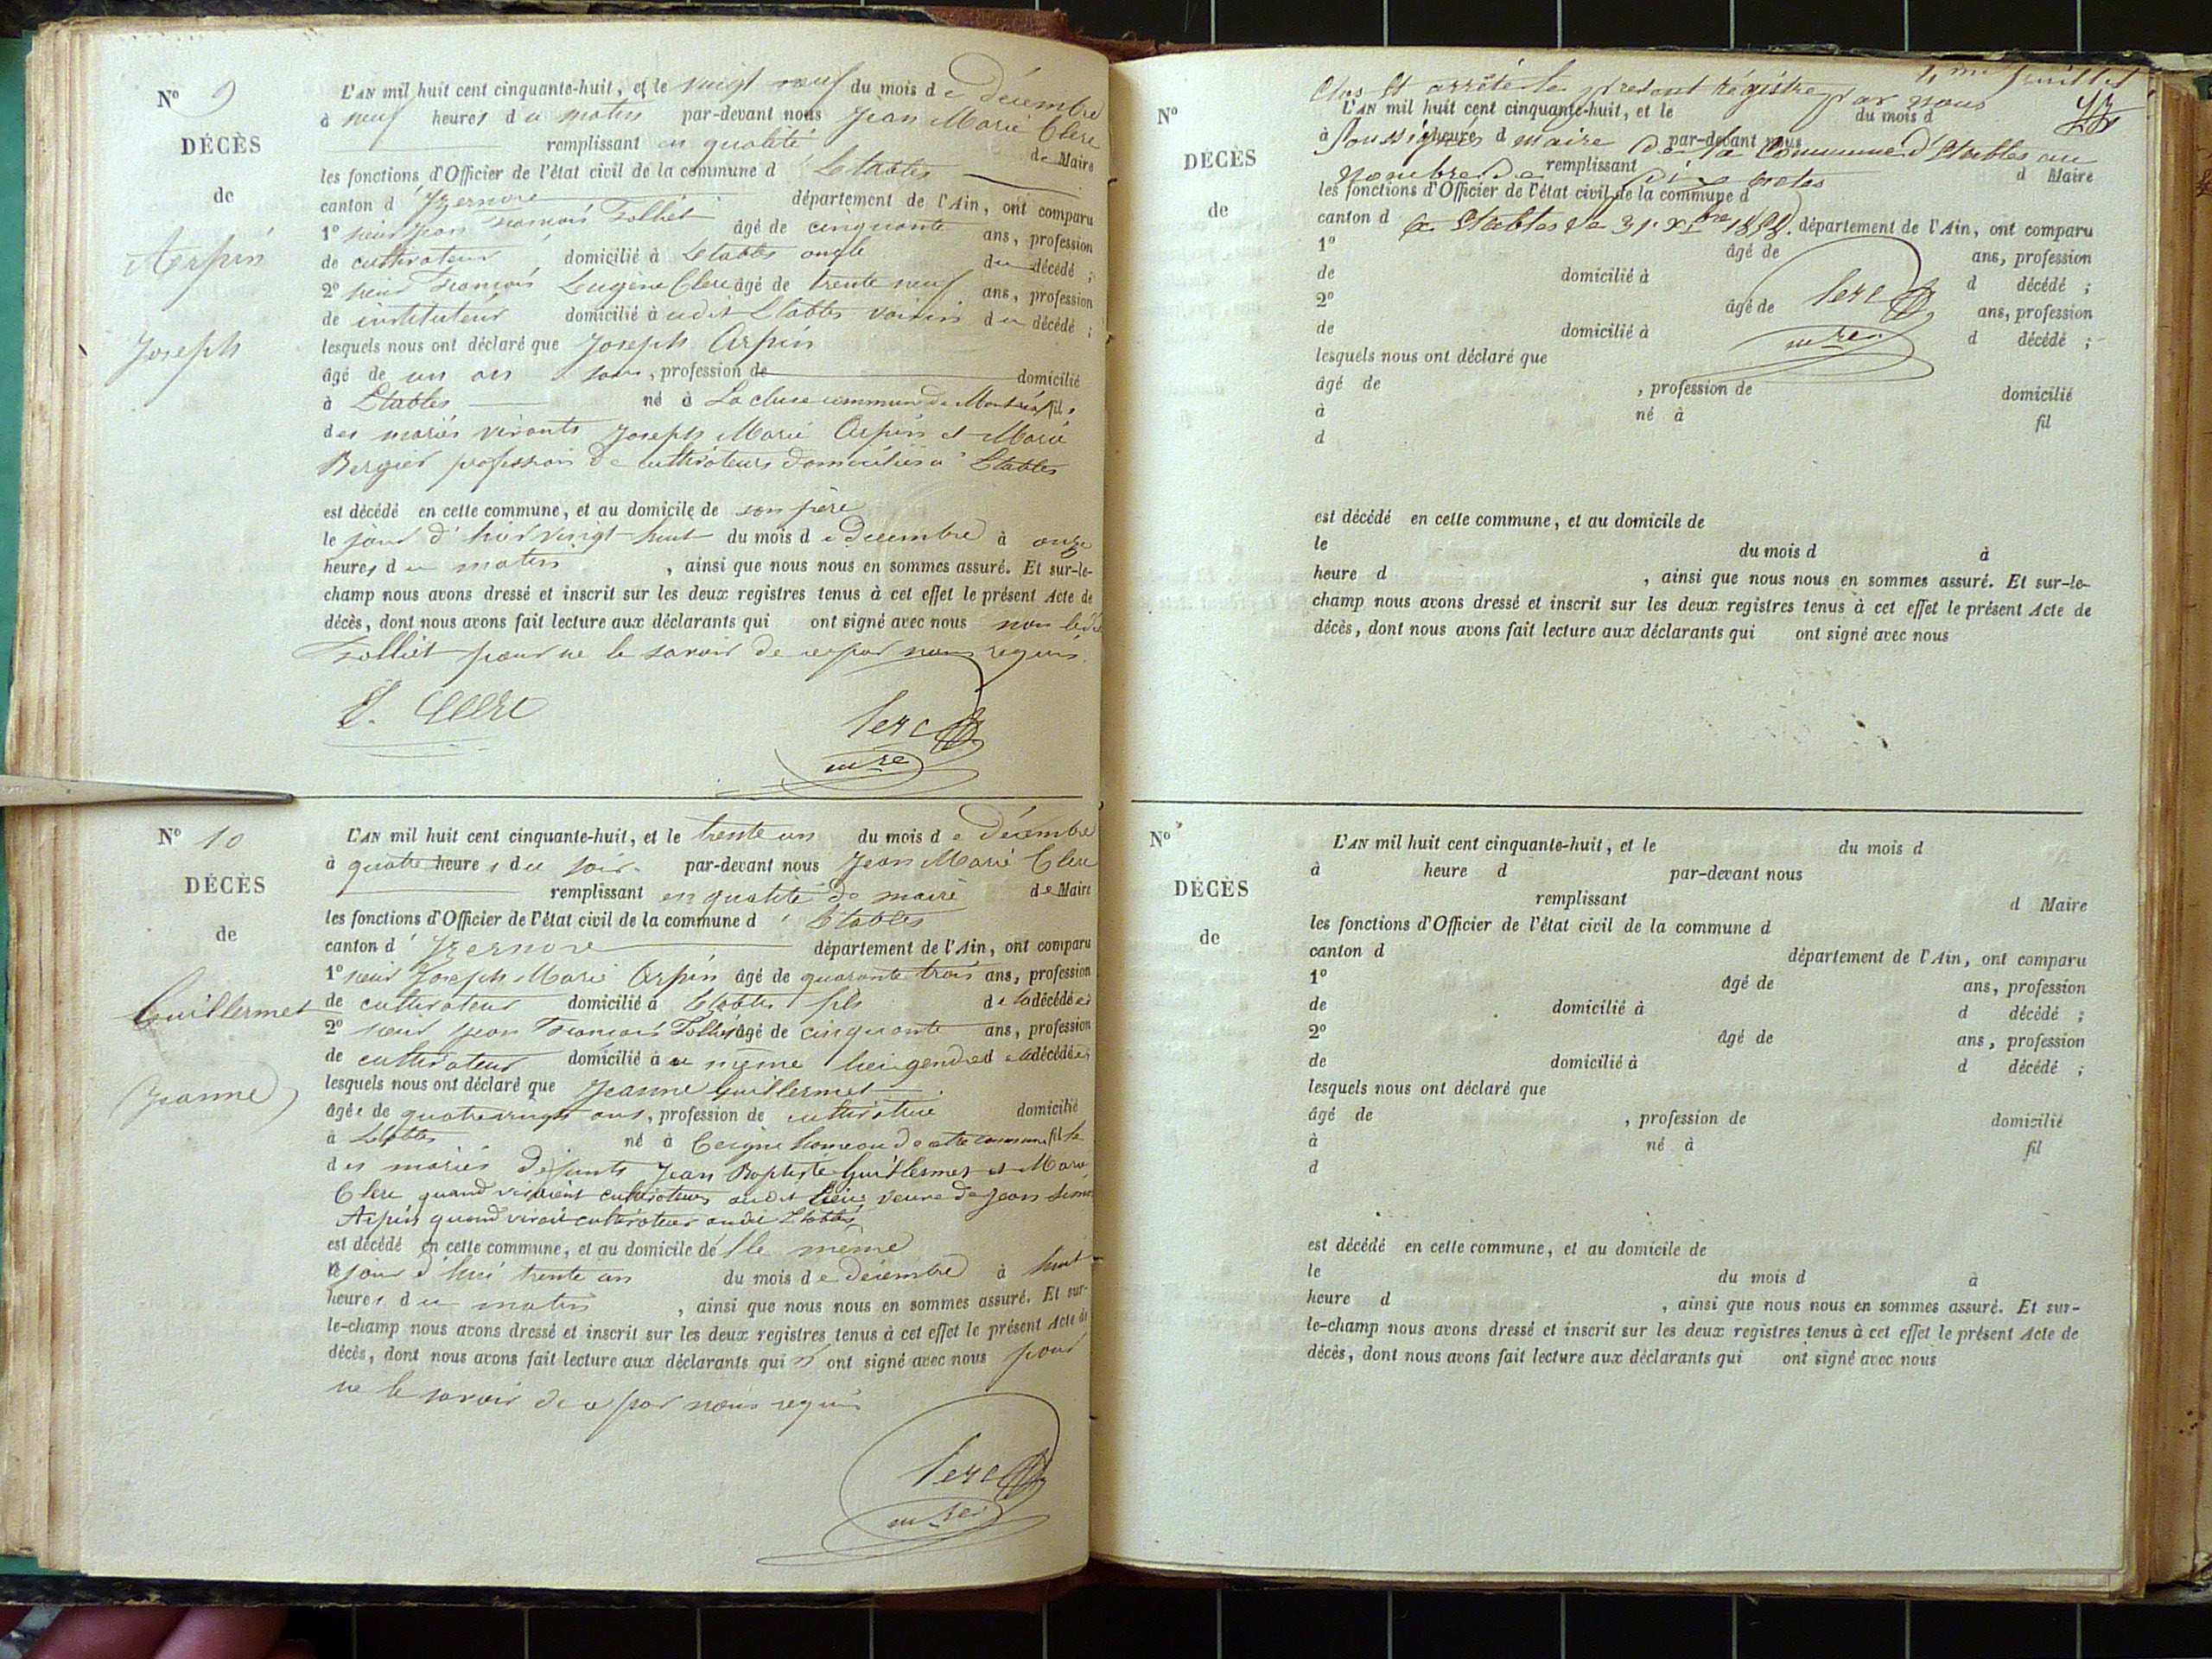 N° 9
DÉCÈS
de
Arpin
Joseph
L'AN mil huit cent cinquante-huit, et le vingt neuf du mois de décembre
à neuf heures du matin par-devant nous Jean Marie Clerc
remplissant en qualité de Maire
les fonctions d'Officier de l'état civil de la commune d'Etables
canton d'Izernore département de l'Ain, ont comparu
1° sieur Jean François Tolliet âgé de cinquante ans, profession
de cultivateur domicilié à Etables oncle du décédé ;
2° sieur François Eugène Clerc âgé de trente neuf ans, profession
de instituteur domicilié à udit Etables voisin du décédé ;
lesquels nous ont déclaré que Joseph Arpin
âgé de un an , profession de domicilié
à Etables né à La cluse commune de Montréal, fils
des mariés vivants Joseph Marie Arpin et Marie
Bergier profession de cultivateurs domiciliés à Etables
est décédé en cette commune, et au domicile de son père
le jour d'hier vingt huit du mois de décembre à onze
heures du matin , ainsi que nous nous en sommes assuré. Et sur-le-
champ nous avons dressé et inscrit sur les deux registres tenus à cet effet le présent Acte de
décès, dont nous avons fait lecture aux déclarants qui ont signé avec nous non ledit
Tolliet pour ne le savoir de ce par nous requis
E. Clerc
Clerc
mre
N° 10
DÉCÈS
de
Guillermet
(Jeanne)
L'AN mil huit cent cinquante-huit, et le trente un du mois de décembre
à quatre heures du soir par-devant nous Jean Marie Clerc
remplissant en qualité de maire de Maire
les fonctions d'Officier de l'état civil de la commune d'Etables
canton d'Izernore département de l'Ain, ont comparu
1° sieur Joseph Marie Arpin âgé de quarante trois ans, profession
de cultivateur domicilié à Etables fils de la décédée
2° sieur Jean François Tolliet âgé de cinquante ans, profession
de cultivateur domicilié à u même lieu gendre de la décédée
lesquels nous ont déclaré que Jeanne Guillermet
âgée de quatrevingt ans, profession de cultivatrice domicilié
à Etables né à Ceigne hameau de cette commune fille
des mariés défunts Jean Baptiste Guillermet et Marie
Clerc quand vivaient cultivateurs audit lieu veuve de Jean
Arpin quand vivait cultivateur audit Etables
est décédé en cette commune, et au domicile d'elle même
le jour d'hui trente un du mois de décembre à huit
heures du matin , ainsi que nous nous en sommes assuré. Et sur-
le-champ nous avons dressé et inscrit sur les deux registres tenus à cet effet le présent Acte de
décès, dont nous avons fait lecture aux déclarants qui n'ont signé avec nous pour
ne le savoir de ce par nous requis
Clerc
mre
feuillet
Clos et arrêté le présent régistre par nous
N°
DÉCÈS
de
L'AN mil huit cent cinquante-huit, et le du mois d
à heure d par-devant nous
Soussignés maire de la Commune d'Etables au
remplissant d Maire
nombre de dix actes
les fonctions d'Officier de l'état civil de la commune d
canton d département de l'Ain, ont comparu
à Etables le 31 Xbre 1858.
1° âgé de ans, profession
de domicilié à d décédé ;
2° âgé de ans, profession
Clerc
de domicilié à d décédé ;
mre
lesquels nous ont déclaré que
âgé de , profession de domicilié
à né à fil
d
est décédé en cette commune, et au domicile de
le du mois d à
heure d , ainsi que nous nous en sommes assuré. Et sur-le-
champ nous avons dressé et inscrit sur les deux registres tenus à cet effet le présent Acte de
décès, dont nous avons fait lecture aux déclarants qui ont signé avec nous
N°
DÉCÈS
de
L'AN mil huit cent cinquante-huit, et le du mois d
à heure d par-devant nous
remplissant d Maire
les fonctions d'Officier de l'état civil de la commune d
canton d département de l'Ain, ont comparu
1° âgé de ans, profession
de domicilié à d décédé ;
2° âgé de ans, profession
de domicilié à d décédé ;
lesquels nous ont déclaré que
âgé de , profession de domicilié
à né à fil
d
est décédé en cette commune, et au domicile de
le du mois d à
heure d , ainsi que nous nous en sommes assuré. Et sur-
le-champ nous avons dressé et inscrit sur les deux registres tenus à cet effet le présent Acte de
décès, dont nous avons fait lecture aux déclarants qui ont signé avec nous